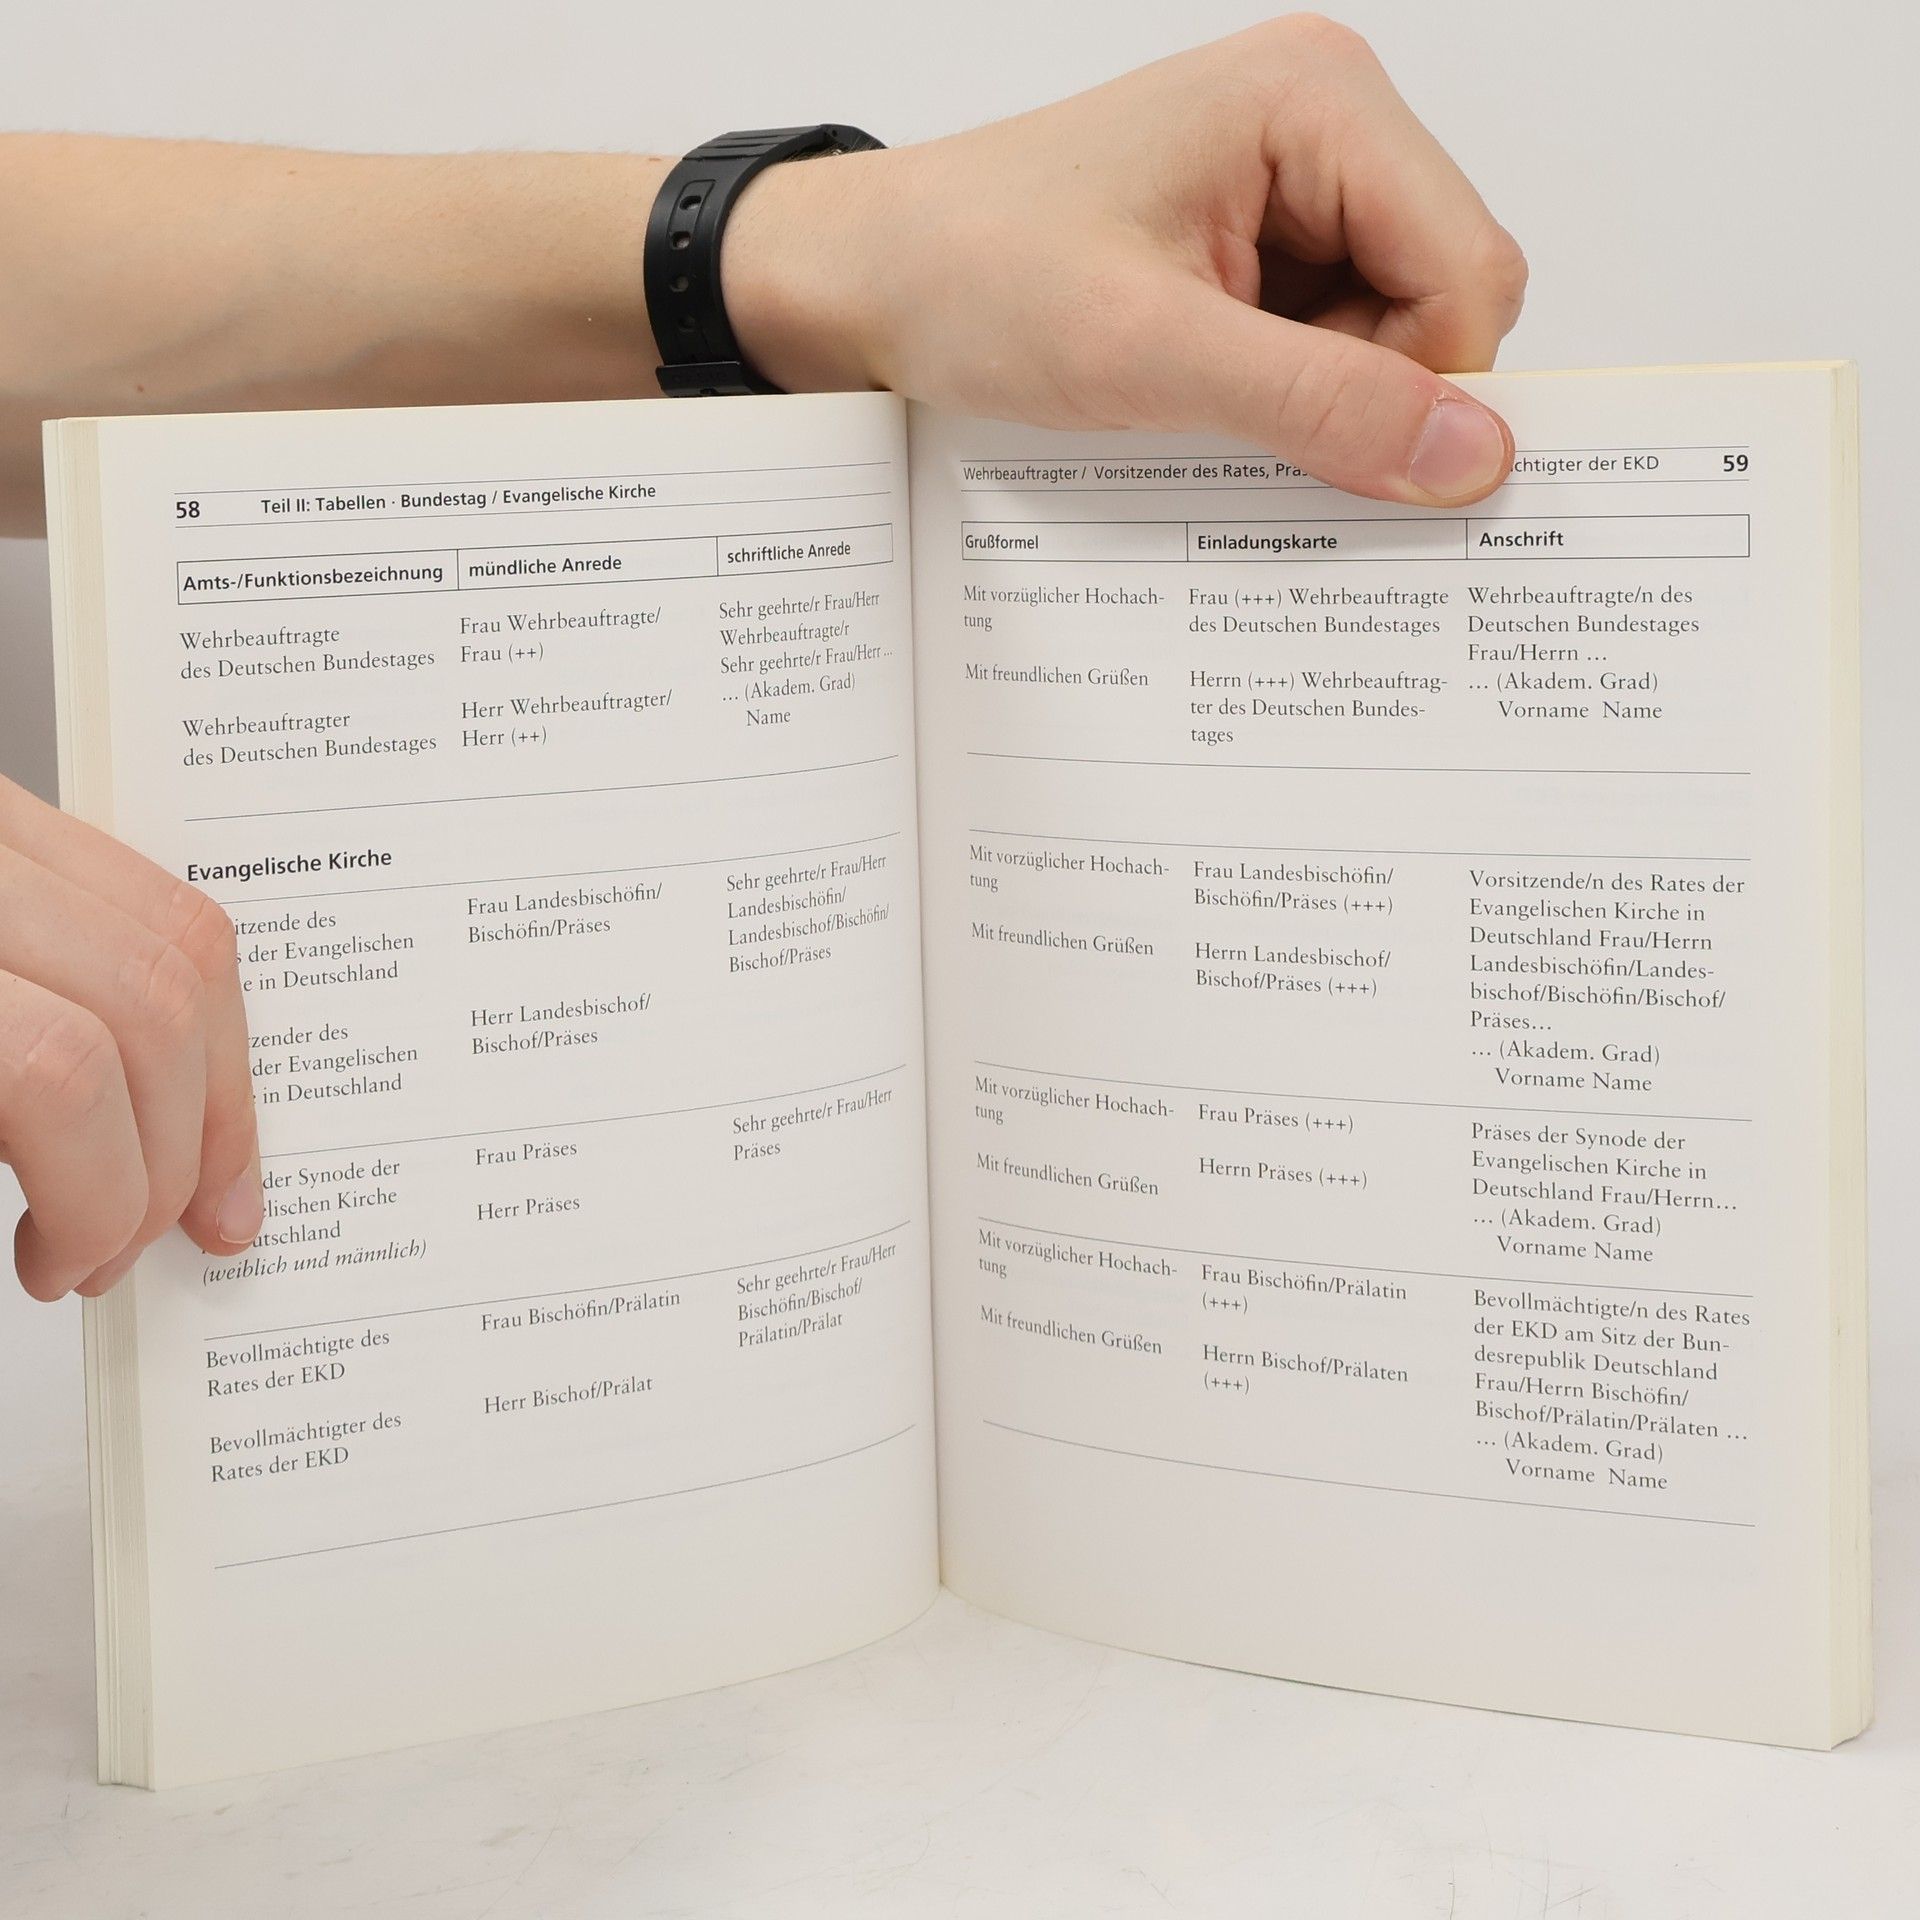 58 Teil II: Tabellen · Bundestag / Evangelische Kirche
Amts-/Funktionsbezeichnung
mündliche Anrede
schriftliche Anrede
Wehrbeauftragte
des Deutschen Bundestages
Wehrbeauftragter
des Deutschen Bundestages
Frau Wehrbeauftragte/
Frau (++)
Herr Wehrbeauftragter/
Herr (++)
Sehr geehrte/r Frau/Herr
Wehrbeauftragte/r
Sehr geehrte/r Frau/Herr ...
... (Akadem. Grad)
Name
Evangelische Kirche
des
der Evangelischen
in Deutschland
des
der Evangelischen
in Deutschland
Frau Landesbischöfin/
Bischöfin/Präses
Herr Landesbischof/
Bischof/Präses
Sehr geehrte/r Frau/Herr
Landesbischöfin/
Landesbischof/Bischöfin/
Bischof/Präses
der Synode der
Kirche
(weiblich und männlich)
Frau Präses
Herr Präses
Sehr geehrte/r Frau/Herr
Präses
Bevollmächtigte des
Rates der EKD
Bevollmächtigter des
Rates der EKD
Frau Bischöfin/Prälatin
Herr Bischof/Prälat
Sehr geehrte/r Frau/Herr
Bischöfin/Bischof/
Prälatin/Prälat
Wehrbeauftragter / Vorsitzender des Rates, der EKD 59
Grußformel
Einladungskarte
Anschrift
Mit vorzüglicher Hochach-
tung
Mit freundlichen Grüßen
Frau (+++) Wehrbeauftragte
des Deutschen Bundestages
Herrn (+++) Wehrbeauftrag-
ter des Deutschen Bundes-
tages
Wehrbeauftragte/n des
Deutschen Bundestages
Frau/Herrn ...
... (Akadem. Grad)
Vorname Name
Mit vorzüglicher Hochach-
tung
Mit freundlichen Grüßen
Frau Landesbischöfin/
Bischöfin/Präses (+++)
Herrn Landesbischof/
Bischof/Präses (+++)
Vorsitzende/n des Rates der
Evangelischen Kirche in
Deutschland Frau/Herrn
Landesbischöfin/Landes-
bischof/Bischöfin/Bischof/
Präses...
... (Akadem. Grad)
Vorname Name
Mit vorzüglicher Hochach-
tung
Mit freundlichen Grüßen
Frau Präses (+++)
Herrn Präses (+++)
Präses der Synode der
Evangelischen Kirche in
Deutschland Frau/Herrn...
... (Akadem. Grad)
Vorname Name
Mit vorzüglicher Hochach-
tung
Mit freundlichen Grüßen
Frau Bischöfin/Prälatin
(+++)
Herrn Bischof/Prälaten
(+++)
Bevollmächtigte/n des Rates
der EKD am Sitz der Bun-
desrepublik Deutschland
Frau/Herrn Bischöfin/
Bischof/Prälatin/Prälaten ...
... (Akadem. Grad)
Vorname Name